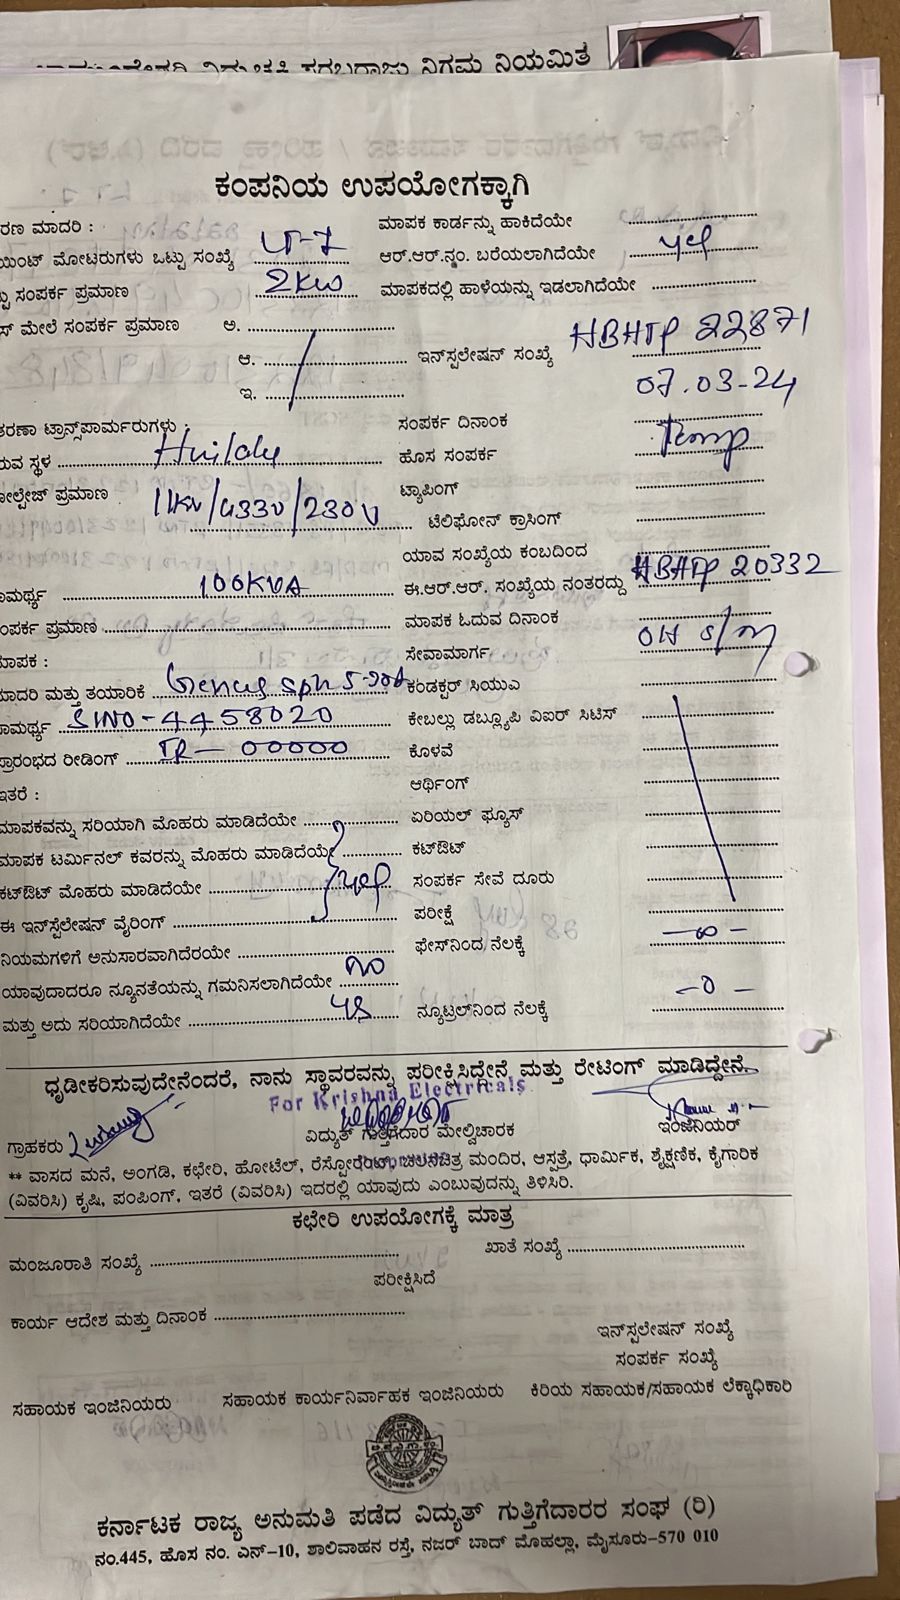 ನಿಗಮ ನಿಯಮಿತ
ಕಂಪನಿಯ ಉಪಯೋಗಕ್ಕಾಗಿ
ರಣ ಮಾದರಿ :
ಮಾಪಕ ಕಾರ್ಡನ್ನು ಹಾಕಿದೆಯೇ
ಯಿಂಟ್ ಮೋಟರುಗಳು ಒಟ್ಟು ಸಂಖ್ಯೆ LT-7
ಆರ್.ಆರ್.ನ್ನಂ. ಬರೆಯಲಾಗಿದೆಯೇ yes
ಟ್ಟು ಸಂಪರ್ಕ ಪ್ರಮಾಣ 2KW
ಮಾಪಕದಲ್ಲಿ ಹಾಳೆಯನ್ನು ಇಡಲಾಗಿದೆಯೇ
ಸ್ ಮೇಲೆ ಸಂಪರ್ಕ ಪ್ರಮಾಣ ಅ.
ಆ.
ಇನ್‌ಸ್ಪಲೇಷನ್ ಸಂಖ್ಯೆ HBHTP 22871
ಇ.
07.03-24
ತರಣಾ ಟ್ರಾನ್ಸ್‌ಪಾರ್ಮರುಗಳು :
ಸಂಪರ್ಕ ದಿನಾಂಕ
ರುವ ಸ್ಥಳ
ಹೊಸ ಸಂಪರ್ಕ Temp
ೋಲ್ಟೇಜ್ ಪ್ರಮಾಣ 11KV/433V/230V
ಟ್ಯಾಪಿಂಗ್
ಟೆಲಿಫೋನ್ ಕ್ರಾಸಿಂಗ್
ಯಾವ ಸಂಖ್ಯೆಯ ಕಂಬದಿಂದ
ಾಮರ್ಥ್ಯ 100KVA
ಈ.ಆರ್.ಆರ್. ಸಂಖ್ಯೆಯ ನಂತರದ್ದು HBHTP 20332
ಂಪರ್ಕ ಪ್ರಮಾಣ
ಮಾಪಕ ಓದುವ ದಿನಾಂಕ
ಾಪಕ :
ಸೇವಾಮಾರ್ಗ OH S/M
ಾದರಿ ಮತ್ತು ತಯಾರಿಕೆ Genus
ಕಂಡಕ್ಟರ್ ಸಿಯುಎ
ಾಮರ್ಥ್ಯ SlNO-4458020
ಕೇಬಲ್ಲು ಡಬ್ಲ್ಯೂಪಿ ವಿಐರ್ ಸಿಟಿಸ್
ಪ್ರಾರಂಭದ ರೀಡಿಂಗ್ IR-00000
ಕೊಳವೆ
ಇತರೆ :
ಆರ್ಥಿಂಗ್
ಮಾಪಕವನ್ನು ಸರಿಯಾಗಿ ಮೊಹರು ಮಾಡಿದೆಯೇ
ಏರಿಯಲ್ ಫ್ಯೂಸ್
ಮಾಪಕ ಟರ್ಮಿನಲ್ ಕವರನ್ನು ಮೊಹರು ಮಾಡಿದೆಯೇ
ಕಟ್‌ಔಟ್
ಕಟ್‌ಔಟ್ ಮೊಹರು ಮಾಡಿದೆಯೇ yes
ಸಂಪರ್ಕ ಸೇವೆ ದೂರು
ಈ ಇನ್‌ಸ್ಪೆಲೇಷನ್ ವೈರಿಂಗ್
ಪರೀಕ್ಷೆ
ನಿಯಮಗಳಿಗೆ ಅನುಸಾರವಾಗಿದೆರಯೇ
ಫೇಸ್‌ನಿಂದ ನೆಲಕ್ಕೆ -∞-
ಯಾವುದಾದರೂ ನ್ಯೂನತೆಯನ್ನು ಗಮನಿಸಲಾಗಿದೆಯೇ no
ಮತ್ತು ಅದು ಸರಿಯಾಗಿದೆಯೇ yes
ನ್ಯೂಟ್ರಲ್‌ನಿಂದ ನೆಲಕ್ಕೆ -0-
ಧೃಡೀಕರಿಸುವುದೇನೆಂದರೆ, ನಾನು ಸ್ಥಾವರವನ್ನು ಪರೀಕ್ಷಿಸಿದ್ದೇನೆ ಮತ್ತು ರೇಟಿಂಗ್ ಮಾಡಿದ್ದೇನೆ.
For Krishna Electricals
ಗ್ರಾಹಕರು
ವಿದ್ಯುತ್ ಗುತ್ತಿಗೆದಾರ ಮೇಲ್ವಿಚಾರಕ
ಇಂಜಿನಿಯರ್
** ವಾಸದ ಮನೆ, ಅಂಗಡಿ, ಕಛೇರಿ, ಹೋಟೆಲ್, ರೆಸ್ಟೋರೆಂಟ್, ಚಲನಚಿತ್ರ ಮಂದಿರ, ಆಸ್ಪತ್ರೆ, ಧಾರ್ಮಿಕ, ಶೈಕ್ಷಣಿಕ, ಕೈಗಾರಿಕ
(ವಿವರಿಸಿ) ಕೃಷಿ, ಪಂಪಿಂಗ್, ಇತರೆ (ವಿವರಿಸಿ) ಇದರಲ್ಲಿ ಯಾವುದು ಎಂಬುವುದನ್ನು ತಿಳಿಸಿರಿ.
ಕಛೇರಿ ಉಪಯೋಗಕ್ಕೆ ಮಾತ್ರ
ಮಂಜೂರಾತಿ ಸಂಖ್ಯೆ
ಖಾತೆ ಸಂಖ್ಯೆ
ಪರೀಕ್ಷಿಸಿದೆ
ಕಾರ್ಯ ಆದೇಶ ಮತ್ತು ದಿನಾಂಕ
ಇನ್‌ಸ್ಪಲೇಷನ್ ಸಂಖ್ಯೆ
ಸಂಪರ್ಕ ಸಂಖ್ಯೆ
ಸಹಾಯಕ ಇಂಜಿನಿಯರು
ಸಹಾಯಕ ಕಾರ್ಯನಿರ್ವಾಹಕ ಇಂಜಿನಿಯರು
ಕಿರಿಯ ಸಹಾಯಕ/ಸಹಾಯಕ ಲೆಕ್ಕಾಧಿಕಾರಿ
ಕರ್ನಾಟಕ ರಾಜ್ಯ ಅನುಮತಿ ಪಡೆದ ವಿದ್ಯುತ್ ಗುತ್ತಿಗೆದಾರರ ಸಂಘ (ರಿ)
ನಂ.445, ಹೊಸ ನಂ. ಎನ್-10, ಶಾಲಿವಾಹನ ರಸ್ತೆ, ನಜರ್ ಬಾದ್ ಮೊಹಲ್ಲಾ, ಮೈಸೂರು-570 010